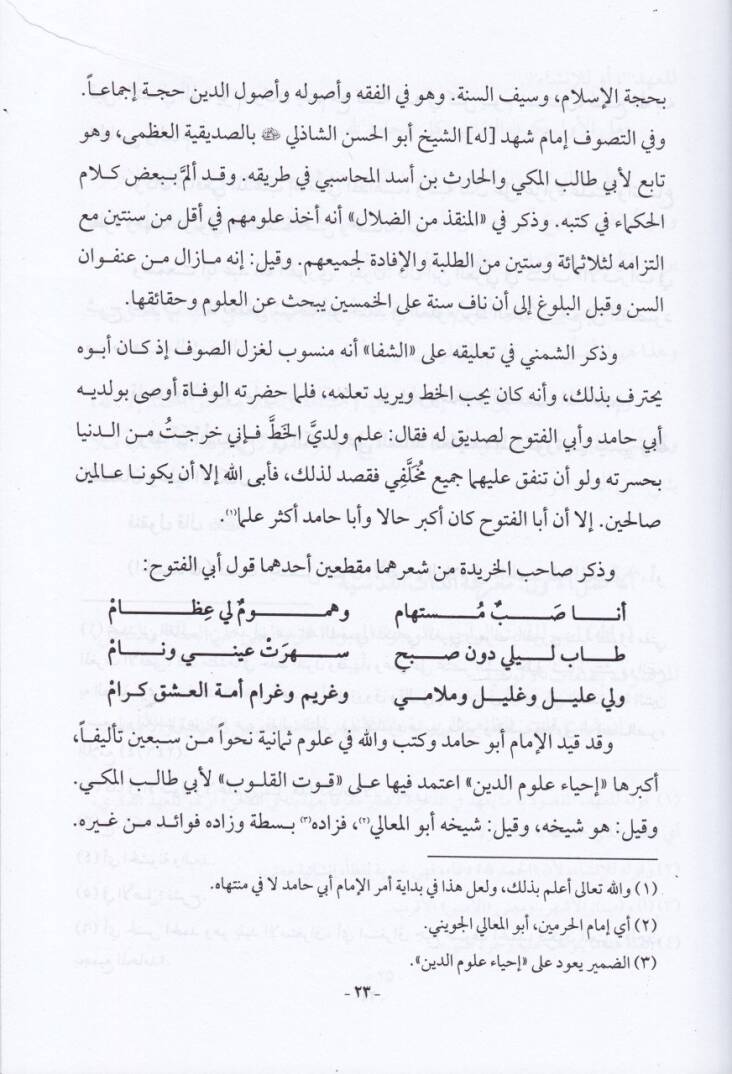 بحجة الإسلام، وسيف السنة. وهو في الفقه وأصوله وأصول الدين حجة إجماعاً.
وفي التصوف إمام شهد [له] الشيخ أبو الحسن الشاذلي ﷺ بالصديقية العظمى، وهو
تابع لأبي طالب المكي والحارث بن أسد المحاسبي في طريقه. وقد ألمَّ ببعض كلام
الحكماء في كتبه. وذكر في «المنقذ من الضلال» أنه أخذ علومهم في أقل من سنتين مع
التزامه لثلاثمائة وستين من الطلبة والإفادة لجميعهم. وقيل: إنه مازال من عنفوان
السن وقبل البلوغ إلى أن ناف سنة على الخمسين يبحث عن العلوم وحقائقها.
وذكر الشمني في تعليقه على «الشفا» أنه منسوب لغزل الصوف إذ كان أبوه
يحترف بذلك، وأنه كان يحب الخط ويريد تعلمه، فلما حضرته الوفاة أوصى بولديه
أبي حامد وأبي الفتوح لصديق له فقال: علم ولديَّ الخَطَّ فإني خرجتُ من الدنيا
بحسرته ولو أن تنفق عليهما جميع مُخَلَّفِي فقصد لذلك، فأبى الله إلا أن يكونا عالمين
صالحين. إلا أن أبا الفتوح كان أكبر حالا وأبا حامد أكثر علما(١).
وذكر صاحب الخريدة من شعرهما مقطعين أحدهما قول أبي الفتوح:
أنا صَبٌ مُستهام وهمومٌ لي عِظامْ
طاب ليلي دون صبح سهرَتْ عيني ونامْ
ولي عليل وغليل وملامي وغريم وغرام أمة العشق كرامْ
وقد قيد الإمام أبو حامد وكتب والله في علوم ثمانية نحواً من سبعين تأليفاً،
أكبرها «إحياء علوم الدين» اعتمد فيها على «قوت القلوب» لأبي طالب المكي.
وقيل: هو شيخه، وقيل: شيخه أبو المعالي(٢)، فزاده(٣) بسطة وزاده فوائد من غيره.
(١) والله تعالى أعلم بذلك، ولعل هذا في بداية أمر الإمام أبي حامد لا في منتهاه.
(٢) أي إمام الحرمين، أبو المعالي الجويني.
(٣) الضمير يعود على «إحياء علوم الدين».
- ٢٣ -